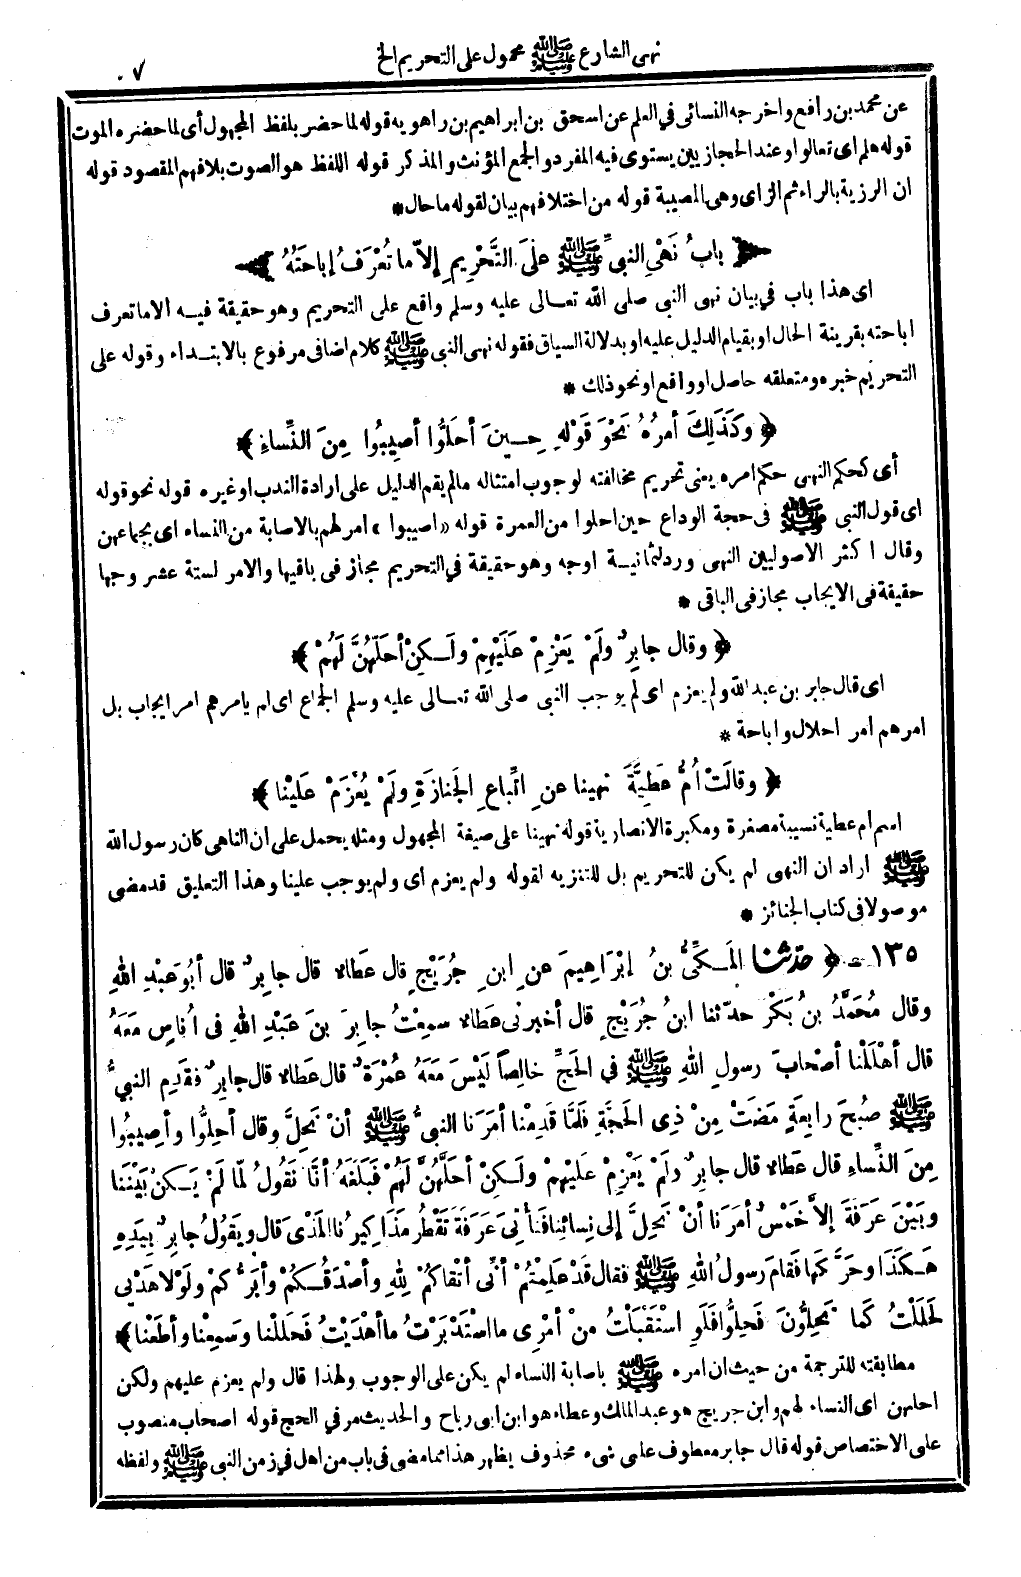 نهى الشارع ﷺ محمول على التحريم الخ
٧٠
عن محمد بن رافع واخرجه النسائى في العلم عن اسحق بن ابراهيم بن راهويه قوله لما حضر بلفظ المجهول أى لما حضره الموت
قوله هلم اى تعالوا وعند الحجازيين يستوى فيه المفرد والجمع المؤنث والمذكر قوله اللفظ هو الصوت بلا فهم المقصود قوله
ان الرزية بالراء ثم الزاى وهى المصيبة قوله من اختلافهم بيان لقوله ما حال *
بابُ نَهْىِ النبىِّ ﷺ عَلَى التَّحْرِيمِ إلاَّ ما تُعْرَفُ إباحَتُهُ
اى هذا باب في بيان نهى النبى صلى الله تعالى عليه وسلم واقع على التحريم وهو حقيقة فيه الا ما تعرف
اباحته بقرينة الحال او بقيام الدليل عليه او بدلالة السياق فقوله نهى النبى ﷺ كلام اضافى مرفوع بالابتداء وقوله على
التحريم خبره ومتعلقه حاصل او واقع او نحو ذلك *
﴿ وكَذَلِكَ أمرُهُ نَحْوَ قَوْلِهِ حِينَ أحَلُّوا أصِيبُوا مِنَ النِّساءِ ﴾
أى كحكم النهى حكم امره يعنى تحريم مخالفته لوجوب امتثاله مالم يقم الدليل على ارادة الندب او غيره قوله نحو قوله
اى قول النبى ﷺ فى حجة الوداع حين احلوا من العمرة قوله «اصيبوا» امر لهم بالاصابة من النساء اى بجماعهن
وقال اكثر الاصوليين النهى ورد لثمانية اوجه وهو حقيقة في التحريم مجاز فى باقيها والامر لستة عشر وجها
حقيقة فى الايجاب مجاز فى الباقى *
﴿ وقال جابِرٌ ولَمْ يَعْزِمْ عَلَيْهِمْ ولَكِنْ أحَلَّهُنَّ لَهُمْ ﴾
اى قال جابر بن عبد الله ولم يعزم اى لم يوجب النبى صلى الله تعالى عليه وسلم الجماع اى لم يامرهم امر ايجاب بل
امرهم امر احلال واباحة *
﴿ وقالَتْ أُمُّ عَطِيَّةَ نهينا عنِ اتِّباعِ الجَنازَةِ ولَمْ يُعْزَمْ عَلَيْنا ﴾
اسم ام عطية نسيبة مصغرة ومكبرة الانصارية قوله نهينا على صيغة المجهول ومثله يحمل على ان الناهى كان رسول الله
ﷺ اراد ان النهى لم يكن للتحريم بل للتنزيه لقوله ولم يعزم اى ولم يوجب علينا وهذا التعليق قد مضى
موصولا فى كتاب الجنائز *
١٣٥ - ﴿ حَدَّثَنَا المَكِّيُّ بنُ إبْرَاهِيمَ عنِ ابنِ جُرَيْجٍ قال عَطاءٌ قال جابِرٌ قال أبُو عَبْدِ اللهِ
وقال مُحَمَّدُ بنُ بَكْرٍ حدّثنا ابنُ جُرَيْجٍ قال أخبرنى عَطاءٌ سمِعْتُ جابِرَ بنَ عَبْدِ اللهِ فى أُناسٍ مَعَهُ
قال أهْلَلْنا أصْحابَ رسولِ اللهِ ﷺ في الحَجِّ خالِصاً لَيْسَ مَعَهُ عُمْرَةٌ قال عَطاءٌ قال جابِرٌ فقَدِمَ النبىُّ
ﷺ صُبْحَ رابِعَةٍ مَضَتْ مِنْ ذِى الحَجَّةِ فَلَمَّا قَدِمْنا أمَرَنا النبىُّ ﷺ أنْ نَحِلَّ وقال أحِلُّوا وأصِيبُوا
مِنَ النِّساءِ قال عَطاءٌ قال جابِرٌ ولَمْ يَعْزِمْ عَلَيْهِمْ ولَكِنْ أحَلَّهُنَّ لَهُمْ فَبَلَغَهُ أنَّا نَقُولُ لمَّا لَمْ يَكنْ بَيْنَنا
وبَيْنَ عَرَفَةَ إلاَّ خَمْسٌ أمَرَنا أنْ نَحِلَّ إلى نِسائِنا فَنَأْتِىَ عَرَفَةَ تَقْطُرُ مَذَاكِيرُنا المَذْىَ قال ويَقُولُ جابِرٌ بِيَدِهِ
هَكَذَا وحَرَّكَها فَقامَ رسولُ اللهِ ﷺ فقال قَدْ عَلِمْتُمْ أنِّى أتْقاكُمْ لِلهِ وأصْدَقُكُمْ وأبَرُّكُمْ ولَوْلا هَدْيِي
لَحَلَلْتُ كَما تَحِلُّونَ فَحِلُّوا فَلَوِ اسْتَقْبَلْتُ مِنْ أمْرِى ما اسْتَدْبَرْتُ ما أهْدَيْتُ فَحَلَلْنا وسَمِعْنا وأطَعْنا ﴾
مطابقته للترجمة من حيث ان امره ﷺ باصابة النساء لم يكن على الوجوب ولهذا قال ولم يعزم عليهم ولكن
احلهن اى النساء لهم وابن جريج هو عبد الملك وعطاء هو ابن ابى رباح والحديث مر في الحج قوله اصحاب منصوب
على الاختصاص قوله قال جابر معطوف على شىء محذوف يظهر هذا مما مضى فى باب من اهل في زمن النبى ﷺ ولفظه